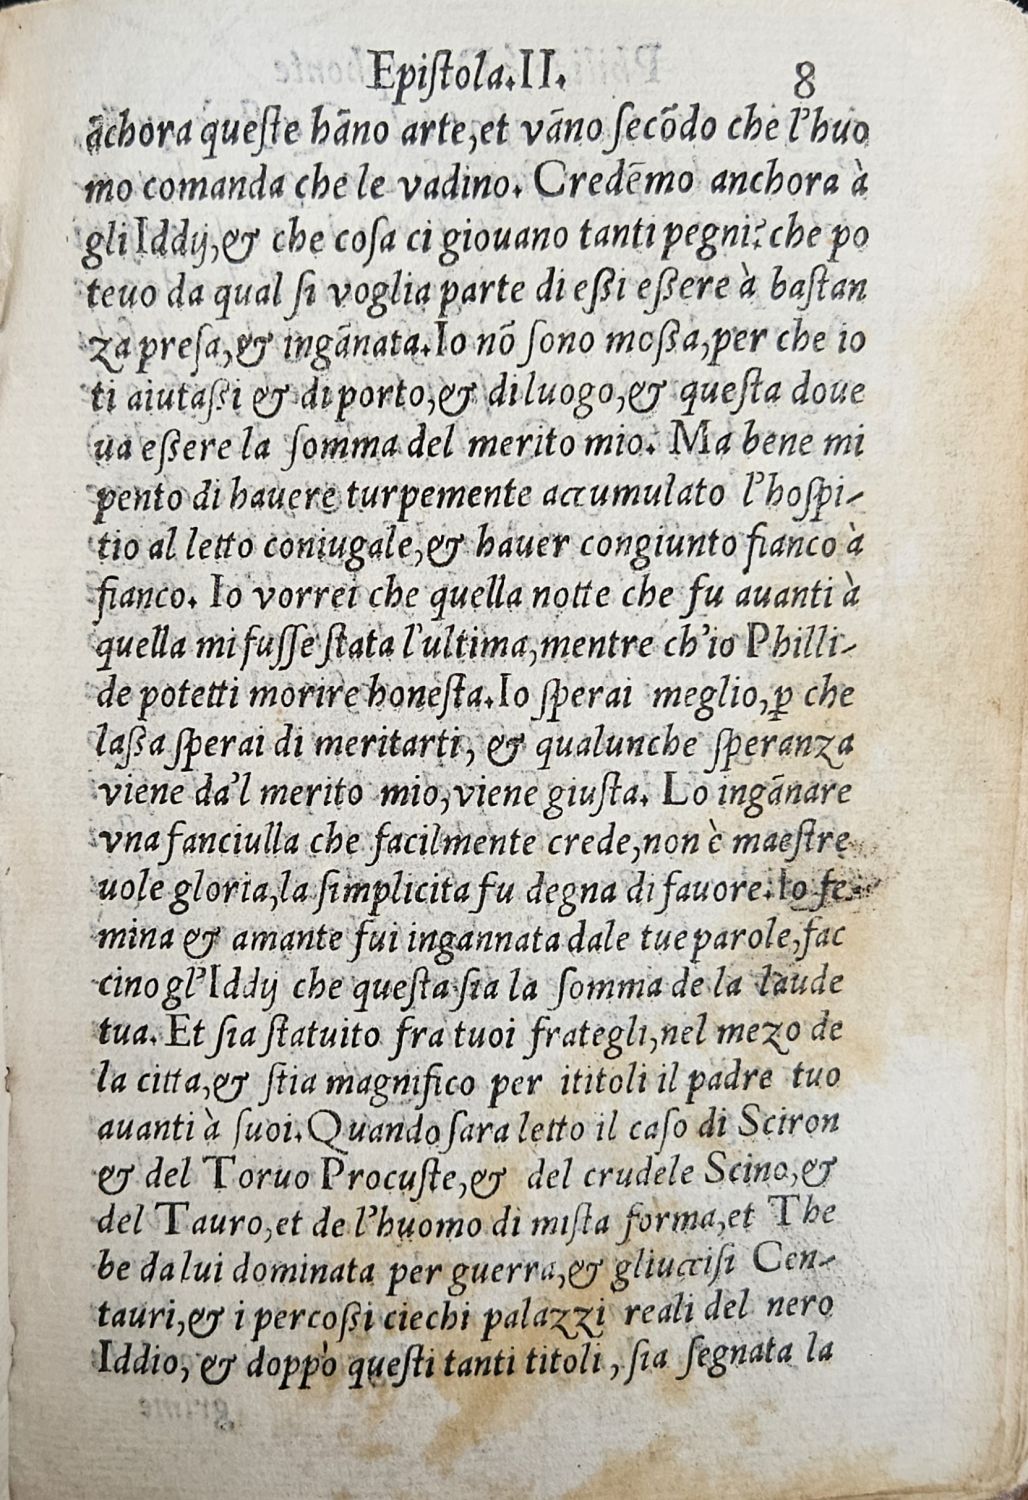 Epiſtola.II. 8
ãchora queſte hãno arte,et vãno ſecõdo che l'huo
mo comanda che le vadino. Credẽmo anchora à
gli Iddij,& che coſa ci giouano tanti pegni? che po
teuo da qual ſi voglia parte di eßi eßere à baſtan
za preſa,& ingãnata.Io nõ ſono moßa,per che io
ti aiutaßi & di porto,& di luogo,& queſta doue
ua eßere la ſomma del merito mio. Ma bene mi
pento di hauere turpemente accumulato l'hoſpi-
tio al letto coniugale,& hauer congiunto fianco à
fianco. Io vorrei che quella notte che fu auanti à
quella mi fuſſe ſtata l'ultima,mentre ch'io Philli-
de potetti morire honeſta.Io ſperai meglio,ꝑ che
laßa ſperai di meritarti, & qualunche ſperanza
viene da'l merito mio,viene giuſta. Lo ingãnare
vna fanciulla che facilmente crede,non è maeſtre
uole gloria,la ſimplicita fu degna di fauore.Io fe-
mina & amante fui ingannata dale tue parole,fac
cino gl'Iddij che queſta ſia la ſomma de la laude
tua. Et ſia ſtatuito fra tuoi frategli,nel mezo de
la citta,& ſtia magnifico per ititoli il padre tuo
auanti à ſuoi.Quando ſara letto il caſo di Sciron
& del Toruo Procuſte,& del crudele Scino,&
del Tauro,et de l'huomo di miſta forma,et The
be da lui dominata per guerra,& gliucciſi Cen-
tauri,& i percoßi ciechi palazzi reali del nero
Iddio, & doppò queſti tanti titoli, ſia ſegnata la